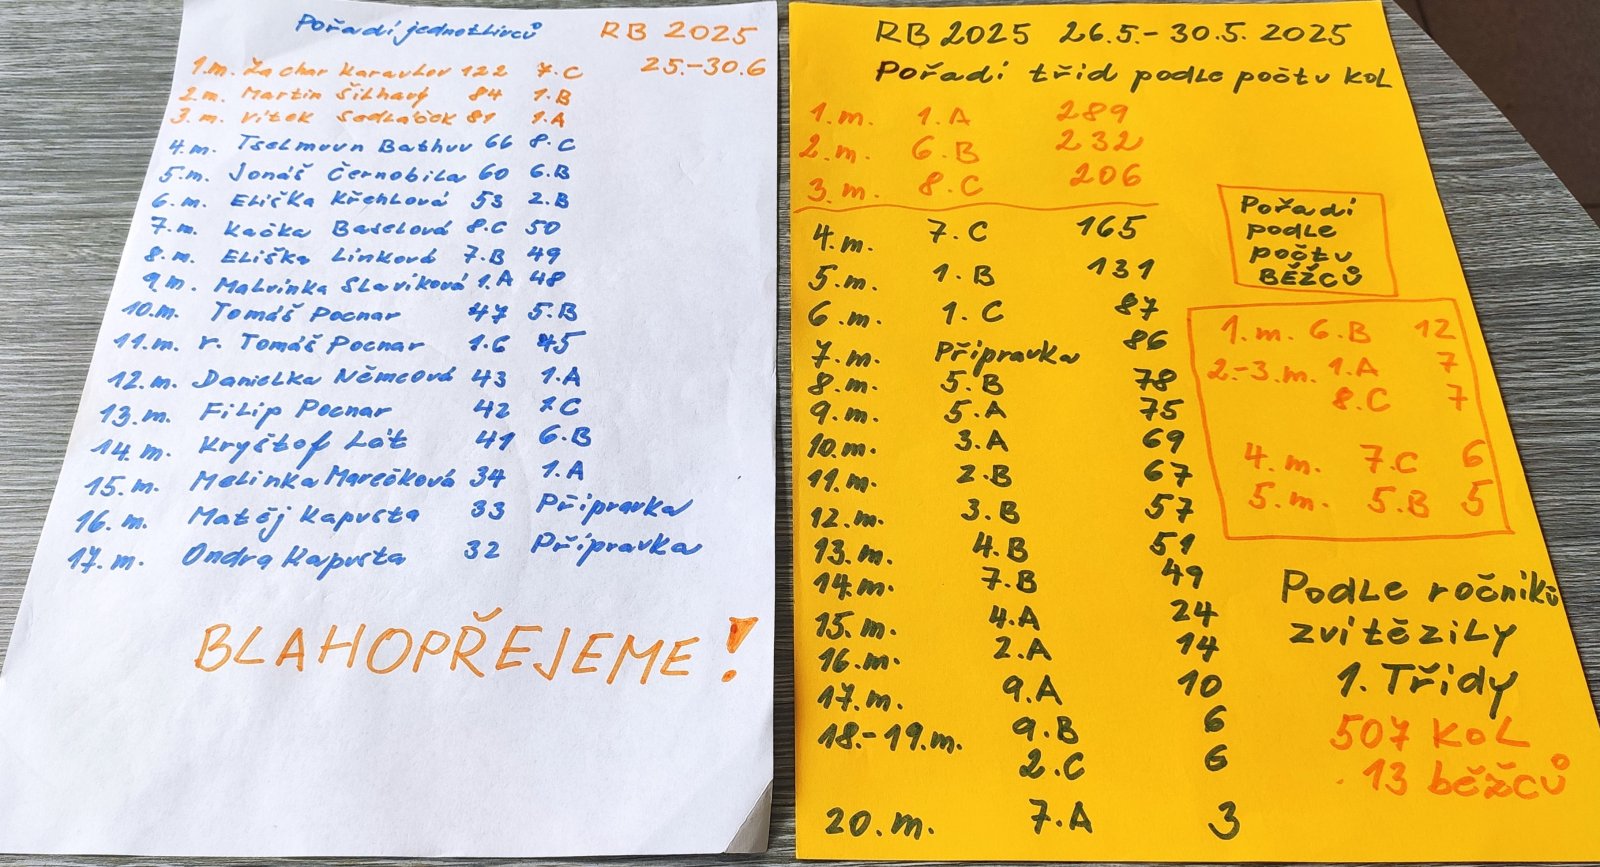 Pořadí jednotlivců
RB 2025
25.-30.6
1.m. Zachar Karavlov 122 7.C
2.m. Martin Šilhavý 84 1.B
3.m. Vítek Sedláček 81 1.A
4.m. Tselmuun Bathuu 66 8.C
5.m. Jonáš Černobila 60 6.B
6.m. Eliška Křehlová 53 2.B
7.m. Kačka Baselová 8.C 50
8.m. Eliška Linková 7.B 49
9.m. Malvínka Slavíková 1.A 48
10.m. Tomáš Pocnar 47 5.B
11.m. r. Tomáš Pocnar 1.C 45
12.m. Danielka Němcová 43 1.A
13.m. Filip Pocnar 42 7C
14.m. Kryštof Lát 41 6.B
15.m. Melinka Marečková 34 1.A
16.m. Matěj Kapusta 33 Přípravka
17.m. Ondra Kapusta 32 Přípravka
BLAHOPŘEJEME!
RB 2025 26.5.-30.5. 2025
Pořadí tříd podle počtu kol
1.m. 1.A 289
2.m. 6.B 232
3.m. 8.C 206
4.m. 7.C 165
5.m. 1.B 131
6.m. 1.C 87
7.m. Přípravka 86
8.m. 5.B 78
9.m. 5.A 75
10.m. 3.A 69
11.m. 2.B 67
12.m. 3.B 57
13.m. 4.B 51
14.m. 7.B 49
15.m. 4.A 24
16.m. 2.A 14
17.m. 9.A 10
18.-19.m. 9.B 6
2.C 6
20.m. 7.A 3
Pořadí
podle
počtu
BĚŽCŮ
1.m. 6.B 12
2.-3.m. 1.A 7
8.C 7
4.m. 7.C 6
5.m. 5.B 5
Podle ročníků
zvítězily
1. Třídy
507 kol
13 běžců